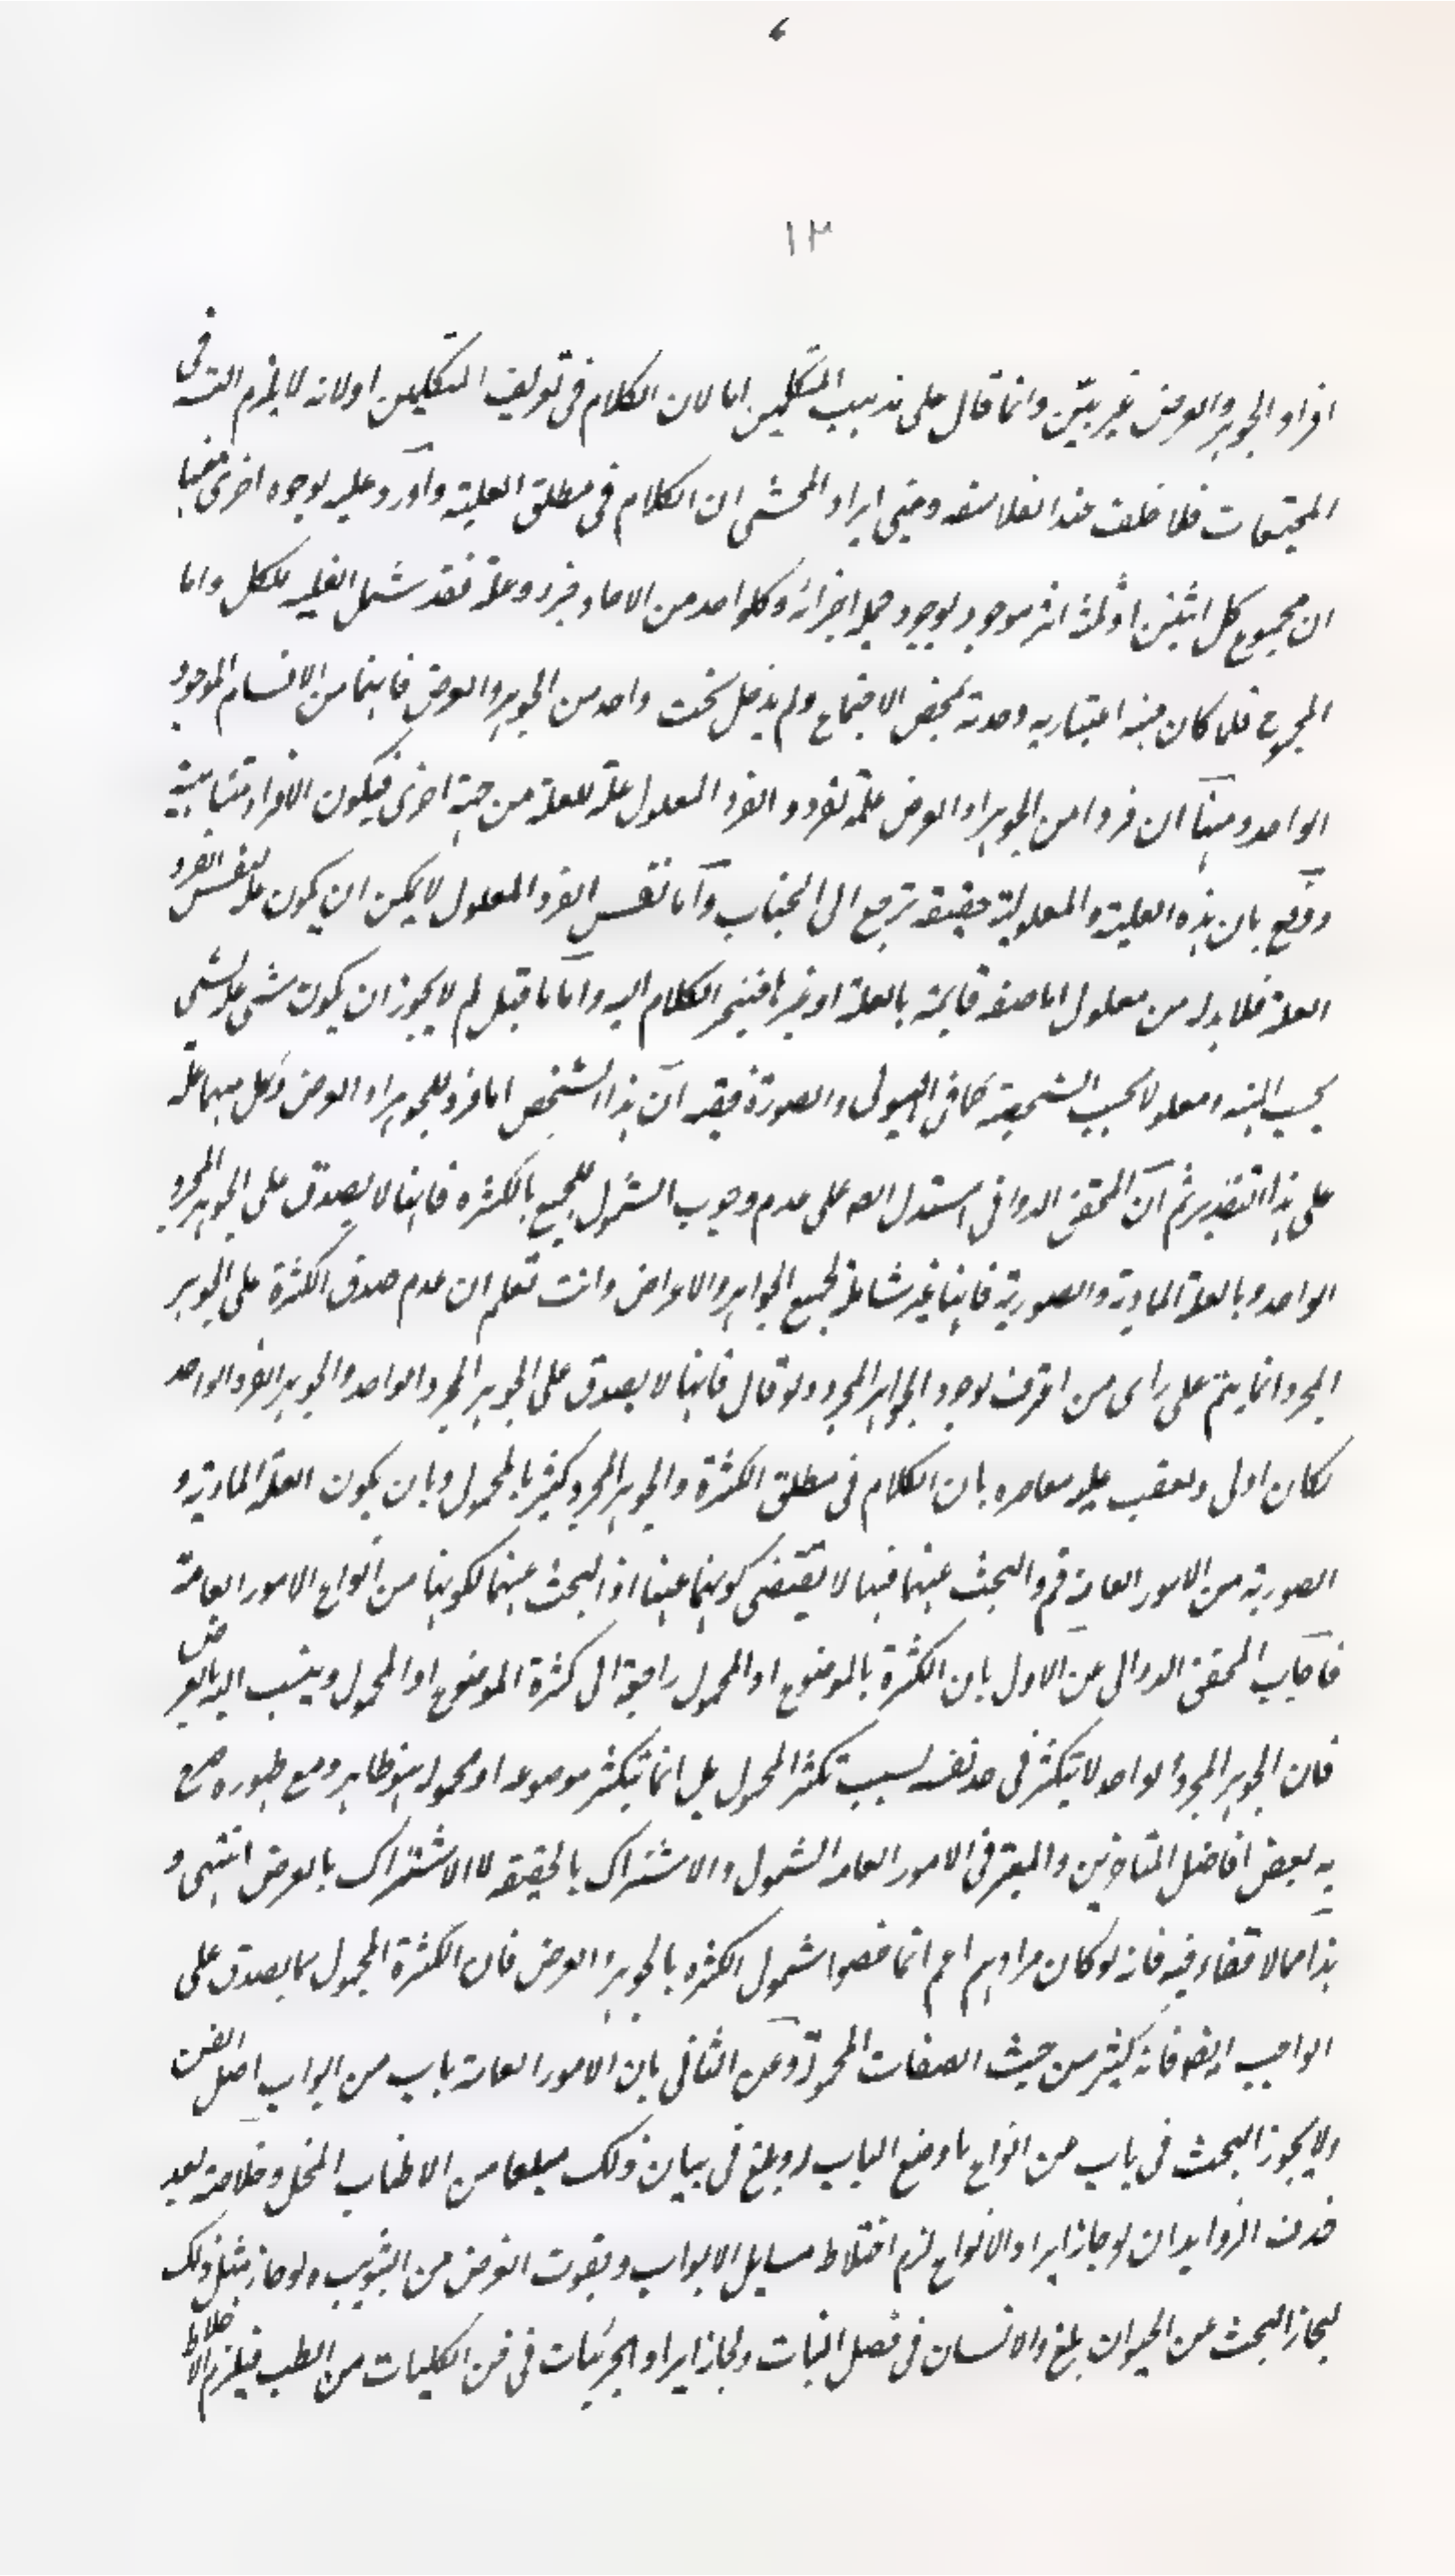 ١٣
افراد الجوهر والعرض غير بيّن وانما قال على مذهب المتكلمين اما لان الكلام فى تعريف المتكلمين اولانه لا يلزم التسـ فى
المجتمعات فلا خلف عند الفلاسفه ومبنى ايراد المحشى ان الكلام فى مطلق العلية وأورد عليه بوجوه اخرى منها
ان مجموع كل اثنين او ثلثة اثر موجود بوجود جميع اجزائه وكلواحد من الاحاد جزء وعلة فقد شمل العلية للكل واما
المجموع فلما كان جنسه اعتباريه وحدته بمحض الاجتماع ولم يدخل تحت واحد من الجوهر والعرض فانهما من الاقسام الموجود
الواحد ومنها ان فردا من الجوهر او العرض علة لفرد والفرد المعلول علة للعلة من جهة اخرى فيكون الافراد متناهية
ودفع بان هذه العلية والمعلولية حقيقه ترجع الى الجهات وأما نفس الفرد المعلول لا يمكن ان يكون علة لنفس الفرد
العلة فلا بد له من معلول اما صفه قايمة بالعلة او غيرها فينجر الكلام اليه واما ما قيل لم لا يجوز ان يكون شى علة لشى
بحسب الجنس ومعلولا بحسب الشخصية كما فى الهيولى والصورة ففيه ان هذا الشخص اما فرد للجوهر او العرض وكل منهما علة
على هذا التقدير ثم ان المحقق الدوانى استدل على عدم وجوب الشمول للجميع بالكثره فانها لا يصدق على الجوهر المجرد
الواحد وبالعلة المادية والصورية فانها غير شاملة لجميع الجواهر والاعراض وانت تعلم ان عدم صدق الكثرة على الجوهر
المجرد انما يتم على راى من اعترف بوجود الجواهر المجرد ولو قال فانها لا يصدق على الجوهر المجرد الواحد والجوهر الفرد الواحد
لكان اولى وتعقب عليه معاصره بان الكلام فى مطلق الكثرة والجوهر المجرد كثير بالمحمول وبان يكون العلة المادية و
الصورية من الامور العامة قم والبحث عنهما فيها لا يقتضى كونهما عينها اذ البحث عنهما لكونها من انواع الامور العامة
فاجاب المحقق الدوانى عن الاول بان الكثرة بالموضوع او المحمول راجعة الى كثرة الموضوع او المحمول وينسب اليه بالعرض
فان الجوهر المجرد الواحد لا يتكثر فى حد نفسه بسبب تكثر المحمول بل انما يتكثر موضوعه او محموله هو ظاهر ومع ظهوره صرح
به بعض افاضل المتاخرين والمعتبر فى الامور العامه الشمول والاشتراك بالحقيقه لا الاشتراك بالعرض انتهى و
هذا مما لا خفاء فيه فانه لو كان مرادهم اعم انما خصوا شمول الكثره بالجوهر والعرض فان الكثرة المحمول مما يصدق على
الواجب ايضا فانه كثير من حيث الصفات المحمولة وعن الثانى بان الامور العامة باب من ابواب اصل الفن
ولا يجوز البحث فى باب من انواع ما وضع الباب له وبلغ فى بيان ذلك مبلغا من الاطناب المخل وخلاصة بعد
حذف الزوايد ان لو جاز ايراد الانواع لزم اختلاط مسايل الابواب ويفوت الغرض من التبويب ولو جاز مثل ذلك
لجاز البحث عن الحيوان بل والانسان فى فصل النبات ولجاز ايراد الجزئيات فى فن الكليات من الطب فيلزم الاختلاط